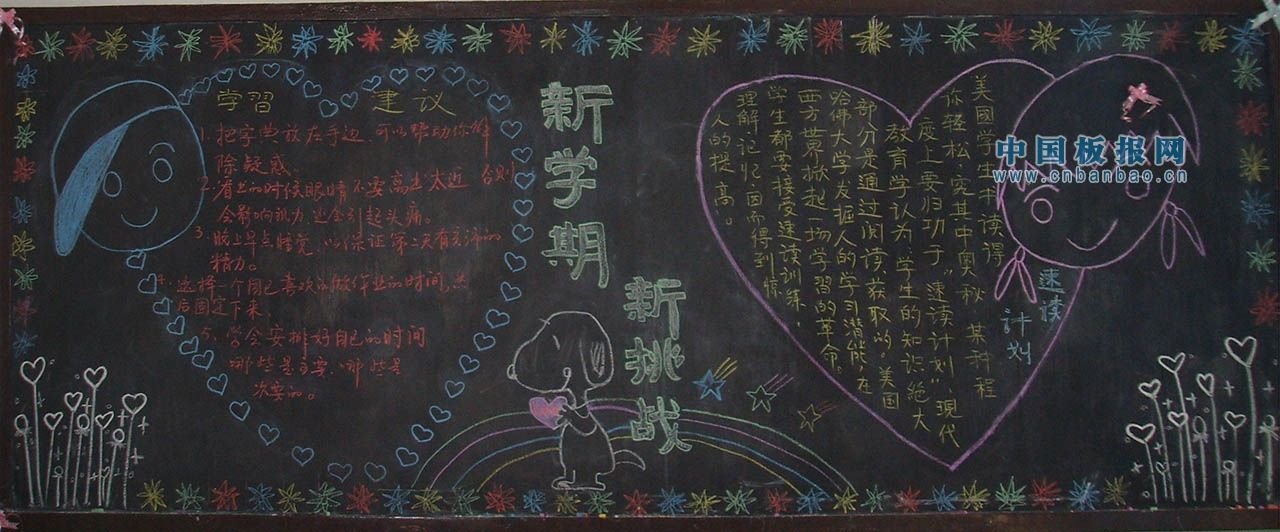 学習 建议
1、把字典放在手边,可以帮助你解
除疑惑。
2、看书的时候眼睛不要离书太近 否则
会影响视力 还会引起头痛。
3、晚上早点睡觉,以保证第二天有充沛的
精力。
4、选择一个自己喜欢的做作业的时间,然
后固定下来、
5、学会安排好自己的时间
哪些是主要,哪些是
次要的。
新学期
新挑战
速读
计划
美國学生书读得
你轻松,究其中奥秘,某种程
度上要归功于“速读计划”、现代
教育学认为,学生的知识绝大
部分是通过阅读获取的。美国
哈佛大学发掘人的学习潜能,在
西方世界掀起一场学習的革命。
学生都要接受速读训练,
理解、记忆因而得到惊
人的提高。
中国板报网
www.cnbanbao.cn